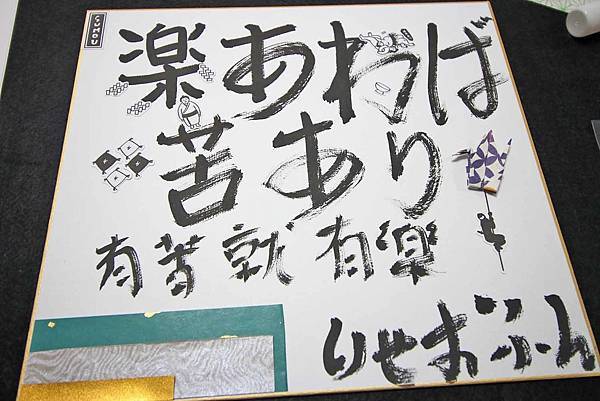 SUMOU
楽あわば
苦あり
有苦就有樂
りせおふん